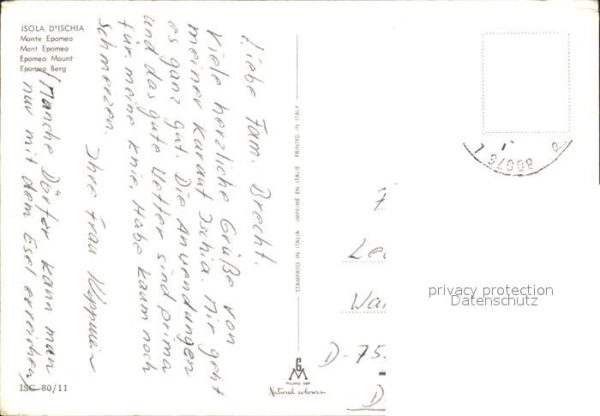 ISOLA D'ISCHIA
Monte Epomeo
Mont Epomeo
Epomeo Mount
Epomeo Berg
Liebe Fam. Brecht.
Viele herzliche Grüße von
meiner Kur auf Ischia. Mir geht
es ganz gut. Die Anwendungen
und das gute Wetter sind prima
für meine Knie. Habe kaum noch
Schmerzen.
Ihre Frau
Manche Dörfer kann man
nur mit dem Esel erreichen
STAMPATO IN ITALIA - IMPRIMÉ EN ITALIE - PRINTED IN ITALY
80076
Wa
D-75
D
privacy protection
Datenschutz
GM
Natural colours
ISC 80/11